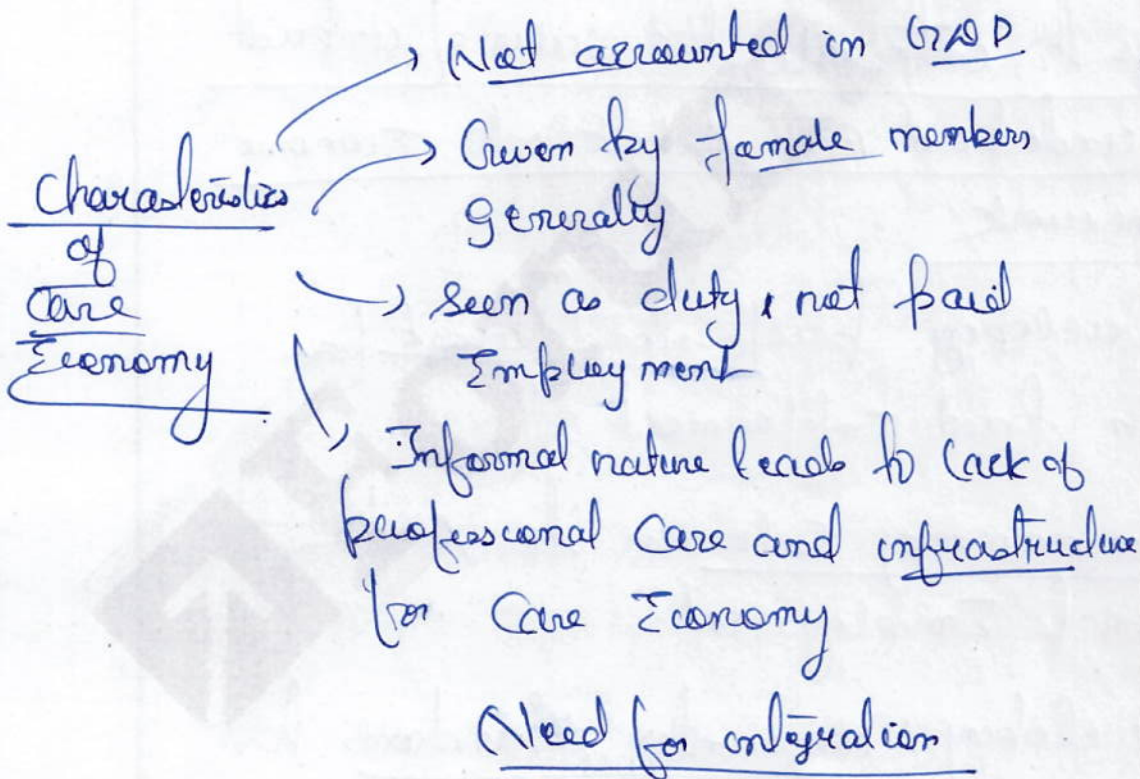 Characteristics
of
Care
Economy
→ Not accounted in GDP
→ Given by female members
Generally
→ seen as duty, not paid
Employment
→ Informal nature leads to lack of
professional Care and infrastructure
for Care Economy
Need for integration